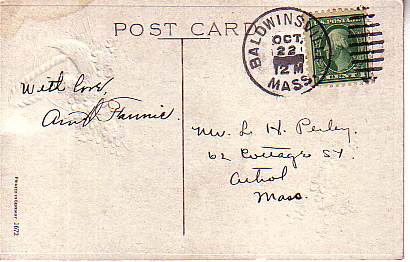 POST CARD
BALDWINS
OCT.
22
12 M
MASS.
With love,
Aunt Fannie.
Mr. L. H. Perley.
62 Cottage St.
Athol
Mass.